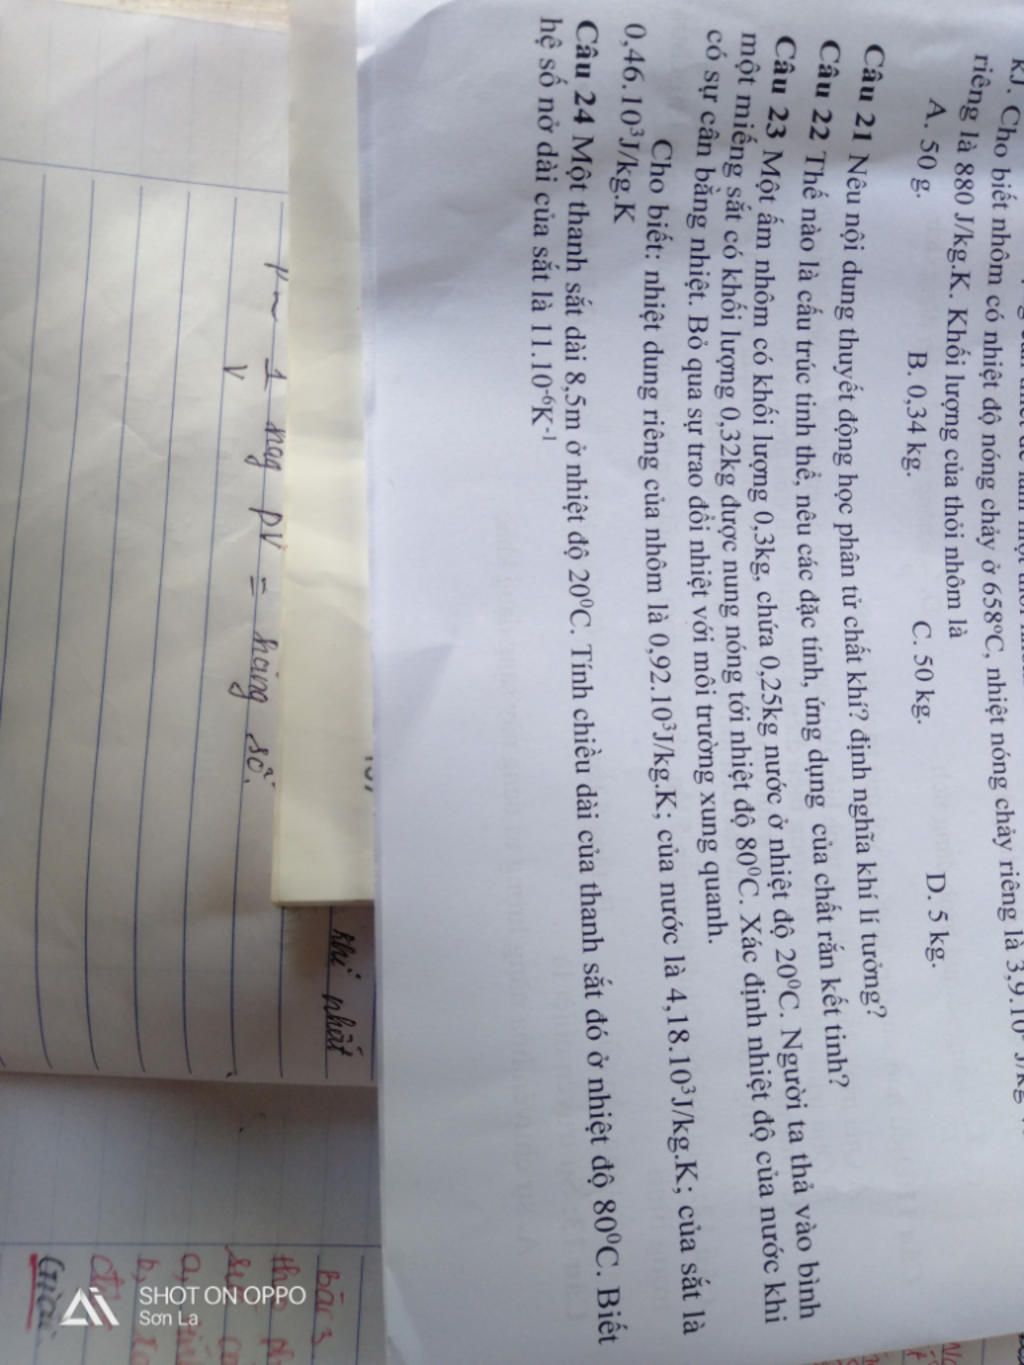 kJ. Cho biết nhôm có nhiệt độ nóng chảy ở 658⁰C, nhiệt nóng chảy riêng là 3,9.10
riêng là 880 J/kg.K. Khối lượng của thỏi nhôm là
A. 50 g. B. 0,34 kg. C. 50 kg. D. 5 kg.
Câu 21 Nêu nội dung thuyết động học phân tử chất khí? định nghĩa khí lí tưởng?
Câu 22 Thế nào là cấu trúc tinh thể, nêu các đặc tính, ứng dụng của chất rắn kết tinh?
Câu 23 Một ấm nhôm có khối lượng 0,3kg, chứa 0,25kg nước ở nhiệt độ 20⁰C. Người ta thả vào bình
một miếng sắt có khối lượng 0,32kg được nung nóng tới nhiệt độ 80⁰C. Xác định nhiệt độ của nước khi
có sự cân bằng nhiệt. Bỏ qua sự trao đổi nhiệt với môi trường xung quanh.
Cho biết: nhiệt dung riêng của nhôm là 0,92.10³J/kg.K; của nước là 4,18.10³J/kg.K; của sắt là
0,46.10³J/kg.K
Câu 24 Một thanh sắt dài 8,5m ở nhiệt độ 20⁰C. Tính chiều dài của thanh sắt đó ở nhiệt độ 80⁰C. Biết
hệ số nở dài của sắt là 11.10⁻⁶K⁻¹
khí nhất
p ~ 1/V hay pV = hằng số.
bài 3
a,
b,
Giải
SHOT ON OPPO
Sơn La